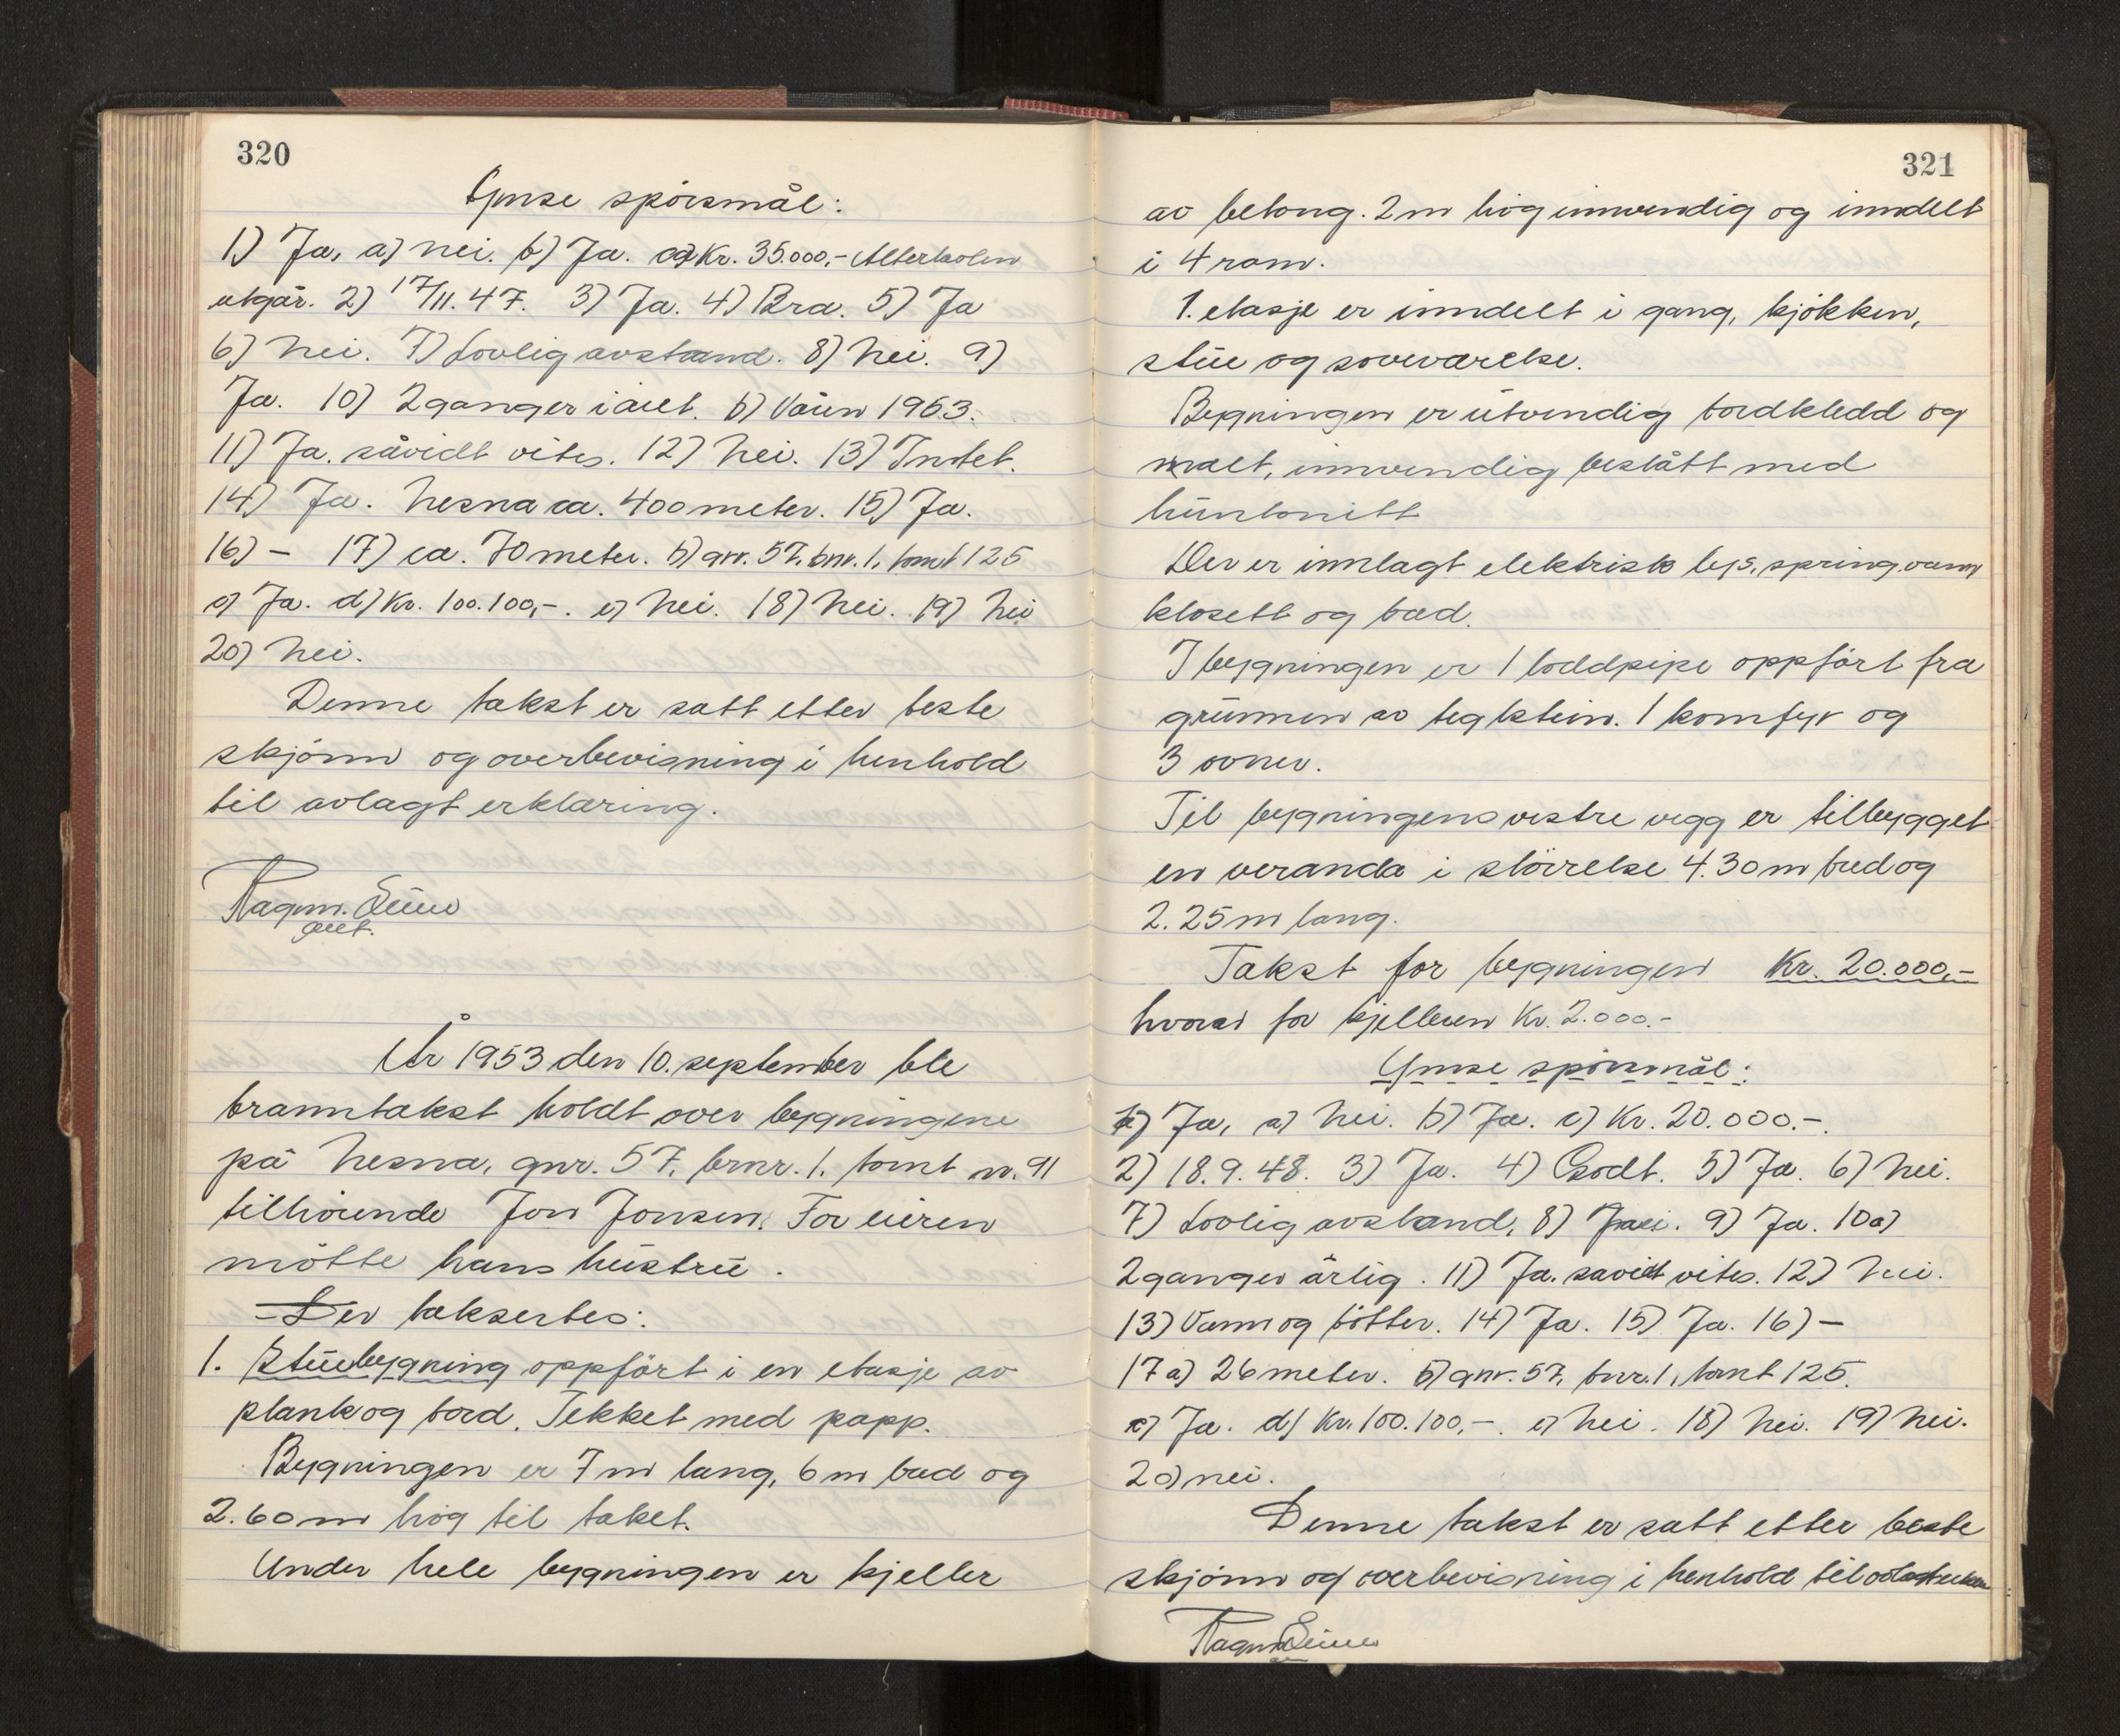 320
Ymse spørsmål:
1) Ja, a) nei. b) Ja. c) Kr. 35.000,- Alterkolen
utgår. 2) 17/11.47. 3) Ja. 4) Bra. 5) Ja
6) Nei. 7) Lovlig avstand. 8) Nei. 9)
Ja. 10) 2 ganger i året. b) Våren 1953.
11) Ja. såvidt vites. 12) Nei. 13) Intet.
14) Ja. Nesna ca. 400 meter. 15) Ja.
16) – 17) ca. 70 meter. b) gnr. 57, bnr. 1, tomt 125
c) Ja. d) Kr. 100.100,-. e) Nei. 18) Nei. 19) Nei
20) Nei.
Denne takst er satt etter beste
skjønn og overbevisning i henhold
til avlagt erklæring.
Ragnv.
År 1953 den 10. september ble
branntakst holdt over bygningene
på Nesna, gnr. 57, brnr. 1. tomt nr. 91
tilhørende Jon Jonsen. For eieren
møtte hans hustru.
Der taksertes:
1. Stuebygning oppført i en etasje av
plank og bord. Tekket med papp.
Bygningen er 7 m lang, 6 m bred og
2.60 m høg til taket.
Under hele bygningen er kjeller
321
av betong. 2 m høg innvendig og inndelt
i 4 rom.
1. etasje er inndelt i gang, kjøkken,
stue og soveværelse.
Bygningen er utvendig bordkledd og
malt, innvendig beslått med
huntonitt
Der er innlagt elektrisk lys, springvann
klosett og bad.
I bygningen er 1 loddpipe oppført fra
grunnen av teglstein. 1 komfyr og
3 ovner.
Til bygningens vestre vegg er tilbygget
en veranda i størrelse 4.30 m bred og
2.25 m lang.
Takst for bygningen Kr. 20.000,-
hvorav for kjelleren Kr. 2.000.-
Ymse spørsmål:
1) Ja, a) Nei. b) Ja. c) Kr. 20.000.-.
2) 18.9.48. 3) Ja. 4) Godt. 5) Ja. 6) Nei.
7) Lovlig avstand, 8) 9) Ja. 10a)
2 ganger årlig. 11) Ja. såvidt vites. 12) Nei.
13) Vann og bøtter. 14) Ja. 15) Ja. 16) –
17 a) 26 meter. b) gnr. 57, bnr. 1, tomt 125.
c) Ja. d) Kr. 100.100,-. e) Nei. 18) Nei. 19) Nei.
20) nei.
Denne takst er satt etter beste
skjønn og overbevisning i henhold til avlagt
Ragnv.